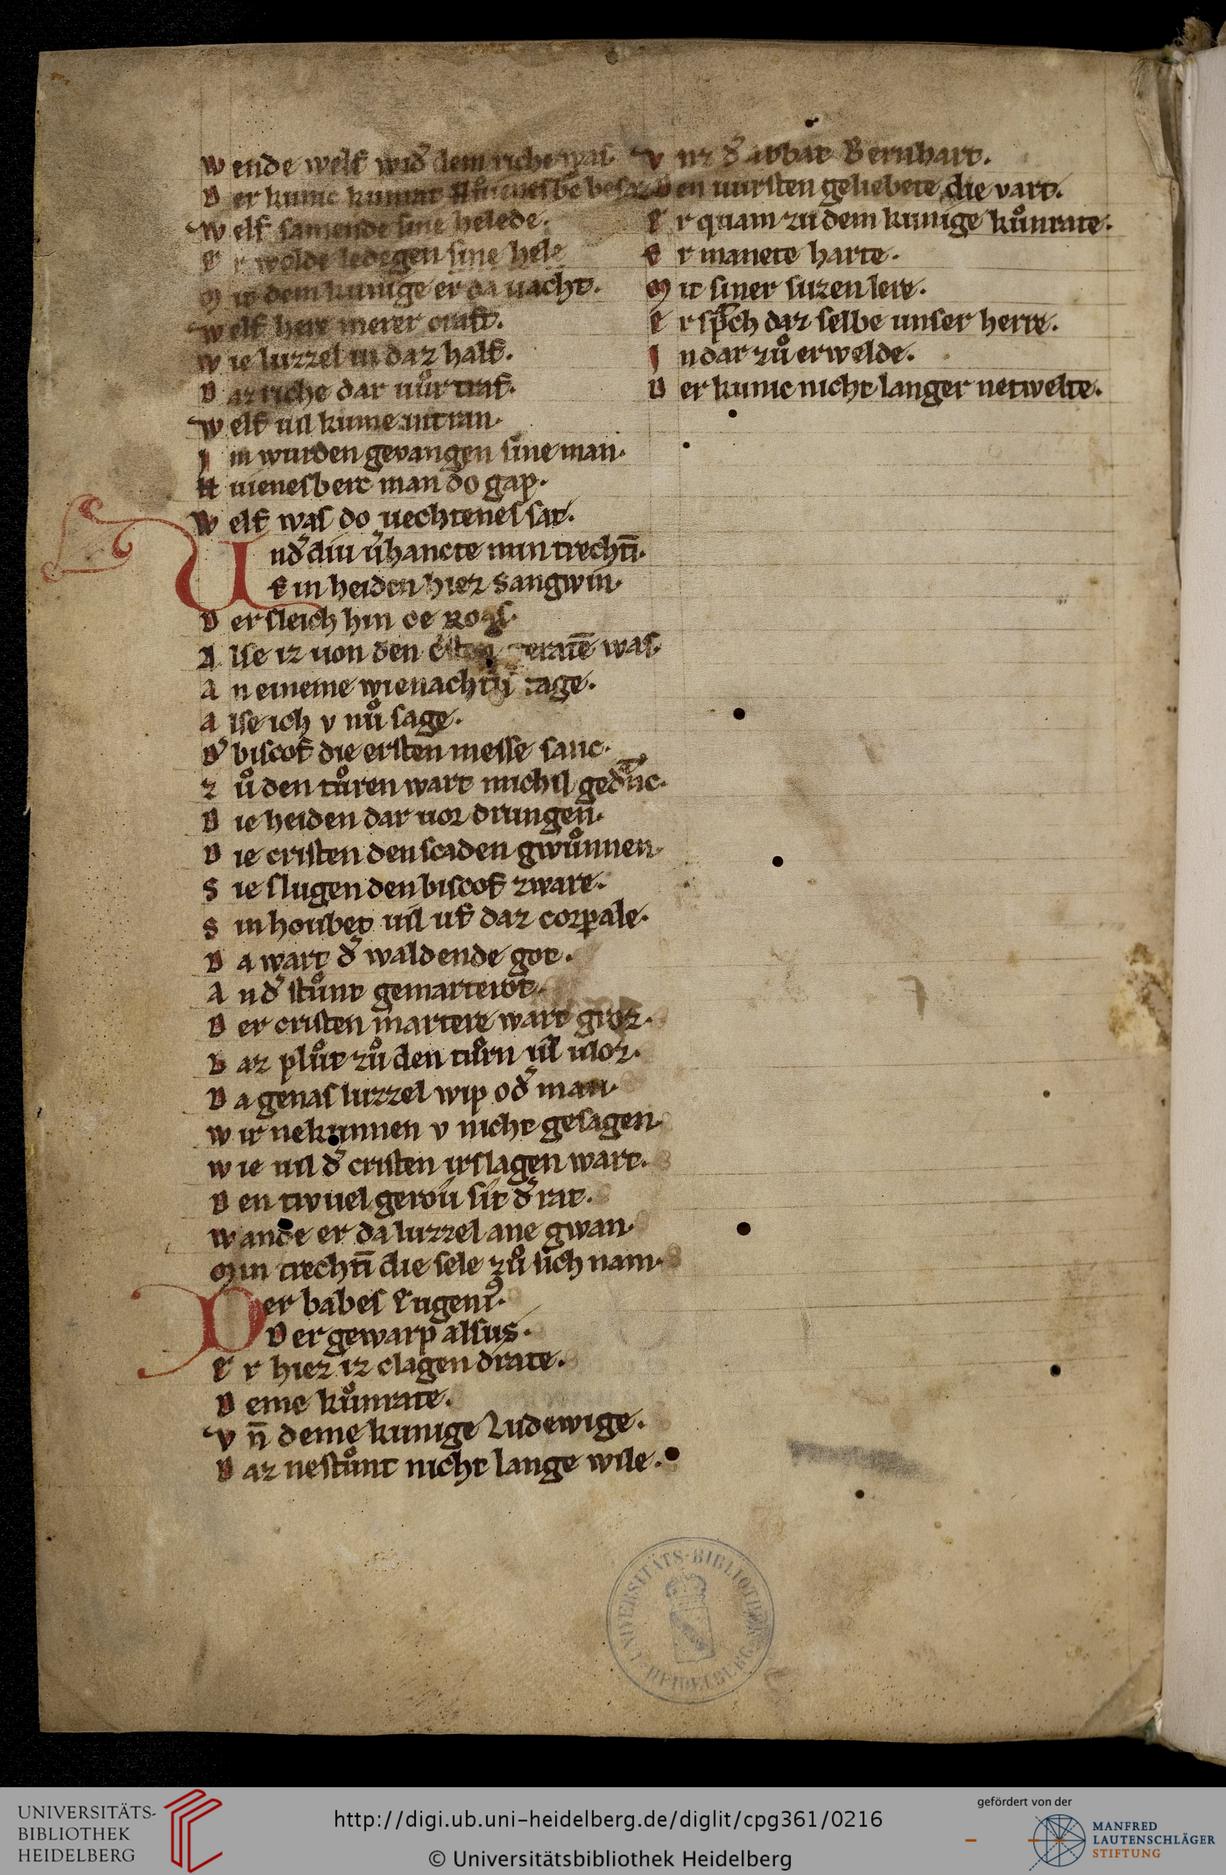 wende welf wid̓ dem riche was.
Der kunic kumit
welf samende sine helede.
Er wolde ledegen sine hele
Mit dem kunige er da uacht.
welf here merer craft.
wie luzzel in daz half.
Daz riche dar nuͦr traf.
welf uil kume intran.
Im wurden gevangen sine man.
Winesberc man do gap.
welf was do uechtenes sat.
Und̓ diu v̓hancte min trechti̅.
Ein heiden hiez Sangwin.
Der sleich hin ce Roas.
Alse iz uon den was.
An eineme wienachti̅ tage.
Alse ich v nuͦ sage.
D̓ biscof die ersten messe sanc.
Zuͦ den tuͦren wart michil
Die heiden dar uor drungen.
Die cristen den scaden gwuͦnnen.
Sie slugen den biscof zware.
Sin houbet uil uf daz corpale.
Da wart d̓ waldende got.
And̓ stuͦnt gemarterot.
Der cristen martere wart groz.
Daz pluͦt zuͦ den tuͦrn uz uloz.
Da genas luzzel wip od̓ man.
wir nekunnen v nicht gesagen.
wie uil d̓ cristen irslagen wart.
Den tiuuel gerou sit d̓ rat.
wande er da luzzel ane gwan.
Min trechti̅ die sele zuͦ sich nam.
Der babes Eugeniꝰ.
Der gewarp alsus.
Er hiez iz clagen drate.
Deme kuͦnrate.
Vn̅ deme kunige Ludewige.
Daz nestuͦnt nicht lange wile.
Vnz d̓ abbat Bernhart.
Den uursten geliebete die vart.
Er quam zu dem kunige kuͦnrate.
Er manete harte.
Mit siner suzen lere.
Er sp̅ch daz selbe unser herre.
In dar zuͦ erwelde.
Der kunic nicht langer netwelte.
UNIVERSITÄTS-BIBLIOTHEK HEIDELBERG
UNIVERSITÄTS-
BIBLIOTHEK
HEIDELBERG
http://digi.ub.uni-heidelberg.de/diglit/cpg361/0216
© Universitätsbibliothek Heidelberg
gefördert von der
MANFRED
LAUTENSCHLÄGER
STIFTUNG